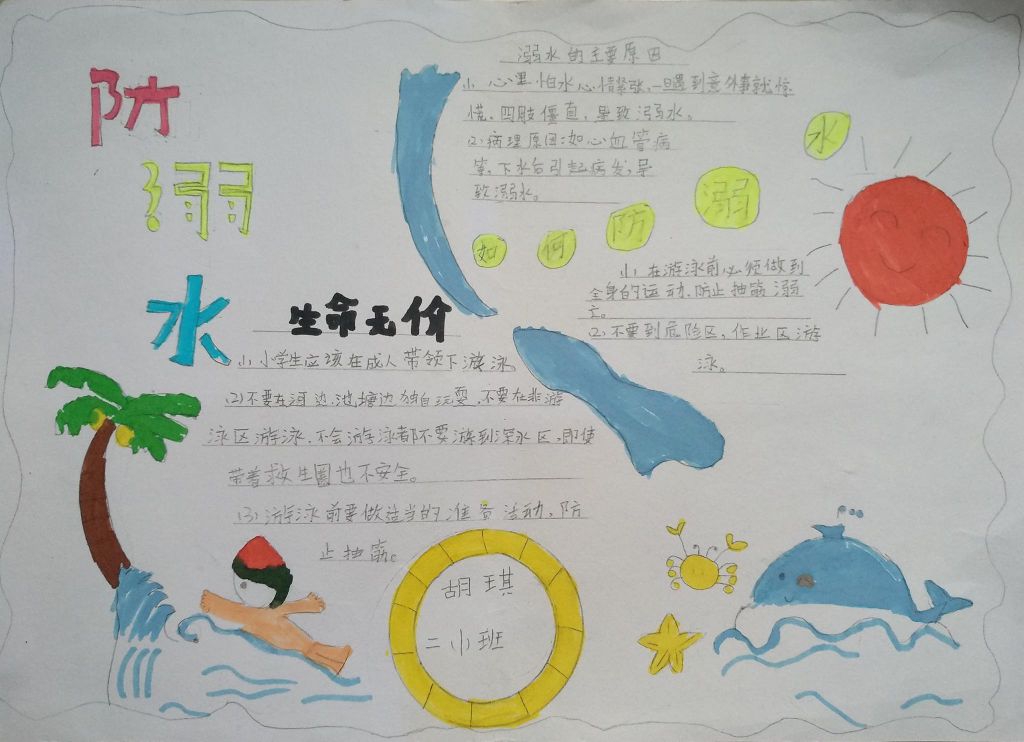 防
溺
水
溺水的主要原因
(1) 心里怕水心情紧张,一旦遇到意外事就惊
慌,四肢僵直,导致溺水。
(2)病理原因:如心血管病
等,下水后引起病发,导
致溺水。
如何防溺水
(1)在游泳前必须做到
全身的运动,防止抽筋溺
亡。
(2)不要到危险区,作业区游
泳。
生命无价
(1)小学生应该在成人带领下游泳。
(2)不要在河边,池塘边独自玩耍,不要在非游
泳区游泳,不会游泳都不要游到深水区,即使
带着救生圈也不安全。
(3)游泳前要做适当的准备活动,防
止抽筋。
胡琪
二小班